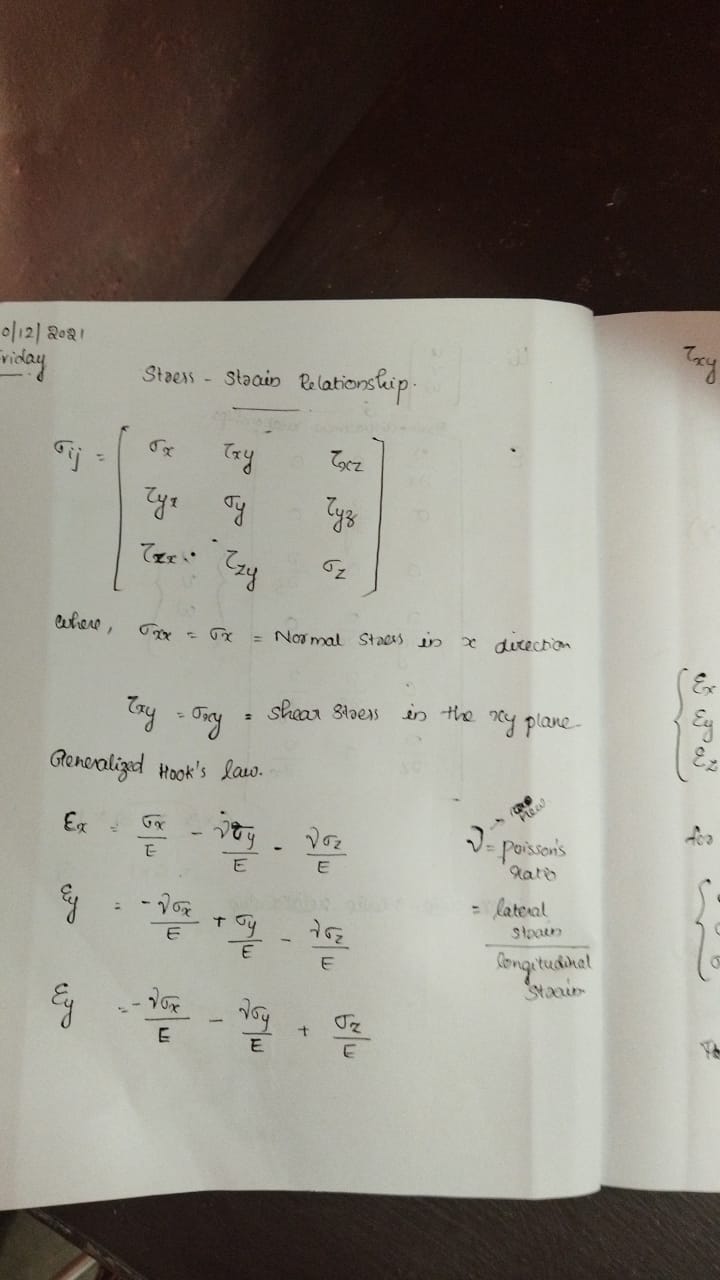 0/12/2021
riday
Stress - Strain Relationship.
σij = [ σx τxy τxz
τyx σy τyz
τzx τzy σz ]
where, σxx = σx = Normal Stress in x direction
τxy = σxy = Shear Stress in the xy plane.
Generalized Hook's law.
Ɛx = σx/E - νσy/E - νσz/E
Ɛy = -νσx/E + σy/E - νσz/E
Ɛy = -νσx/E - νσy/E + σz/E
→ new
ν = Poisson's
Ratio
= lateral
strain
longitudinal
strain
τxy
{ Ɛx
Ɛy
Ɛz
for